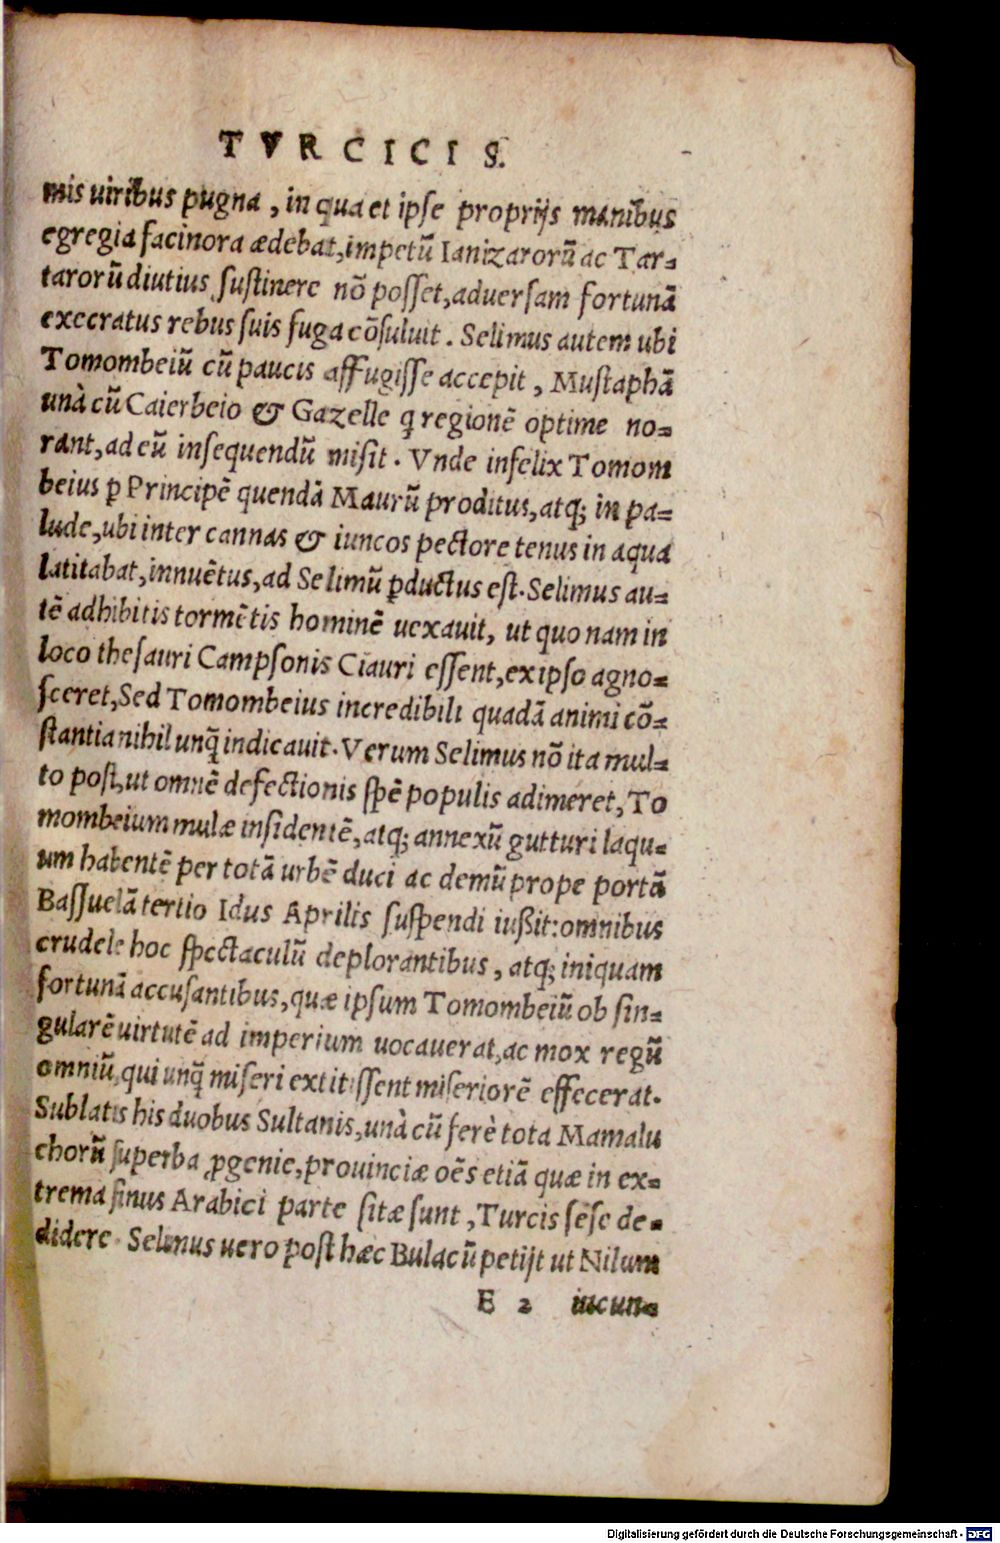 TVRCICIS.
mis uiribus pugna, in qua et ipse proprijs manibus
egregia facinora ædebat, impetũ Ianizarorũ ac Tar=
tarorũ diutius sustinere nõ posset, aduersam fortunã
execratus rebus suis fuga cõsuluit. Selimus autem ubi
Tomombeiũ cũ paucis affugisse accepit, Mustaphã
unà cũ Caierbeio & Gazelle q̃ regionẽ optime no=
rant, ad eũ insequendũ misit. Vnde infelix Tomom
beius ꝑ Principẽ quendã Maurũ proditus, atq; in pa=
lude, ubi inter cannas & iuncos pectore tenus in aqua
latitabat, innuẽtus, ad Selimũ ꝑductus est. Selimus au=
tẽ adhibitis tormẽtis hominẽ uexauit, ut quo nam in
loco thesauri Campsonis Ciauri essent, ex ipso agno=
sceret, Sed Tomombeius incredibili quadã animi cõ=
stantia nihil unq̃ indicauit. Verum Selimus nõ ita mul=
to post, ut omnẽ defectionis spẽ populis adimeret, To
mombeium mulæ insidentẽ, atq; annexũ gutturi laqu=
um habentẽ per totã urbẽ duci ac demũ prope portã
Bassuelã tertio Idus Aprilis suspendi iußit: omnibus
crudele hoc spectaculũ deplorantibus, atq; iniquam
fortunã accusantibus, quæ ipsum Tomombeiũ ob sin=
gularẽ uirtutẽ ad imperium uocauerat, ac mox regũ
omniũ, qui unq̃ miseri extitissent miseriorẽ effecerat.
Sublatis his duobus Sultanis, unà cũ ferè tota Mamalu
chorũ superba ꝓgenie, prouinciæ oẽs etiã quæ in ex=
trema sinus Arabici parte sitæ sunt, Turcis sese de=
didere. Selimus uero post hæc Bulacũ petijt ut Nilum
E 2 iucun=
Digitalisierung gefördert durch die Deutsche Forschungsgemeinschaft - DFG